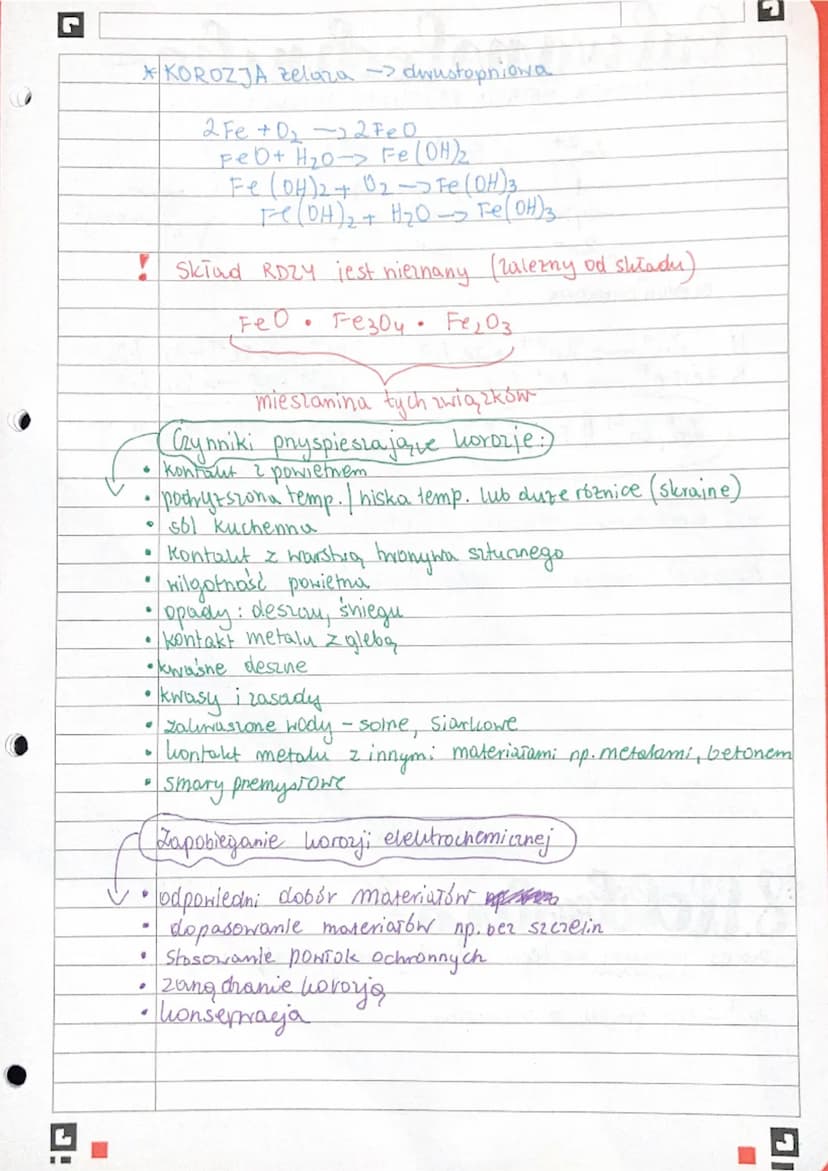 * KOROZJA żelaza -> dwustopniowa
2Fe + O₂ -> 2FeO
FeO + H₂O -> Fe(OH)₂
Fe(OH)₂ + O₂ -> Fe(OH)₃
Fe(OH)₂ + H₂O -> Fe(OH)₃
! Skład RDZY jest nieznany (zależny od składu)
FeO • Fe₃O₄ • Fe₂O₃
mieszanina tych związków
Czynniki przyspieszające korozje:
• kontakt z powietrzem
• podwyższona temp. / niska temp. lub duże różnice (skrajne)
• sól kuchenna
• kontakt z warstwą tworzywa sztucznego
• wilgotność powietrza
• opady: deszczu, śniegu
• kontakt metalu z glebą
• kwaśne deszcze
• kwasy i zasady
• zakwaszone wody - solne, siarkowe
• kontakt metalu z innymi materiałami np. metalami, betonem
• smary przemysłowe
Zapobieganie korozji elektrochemicznej
• odpowiedni dobór materiałów
• dopasowanie materiałów np. bez szczelin
• stosowanie powłok ochronnych
• zarządzanie korozją
• konserwacja